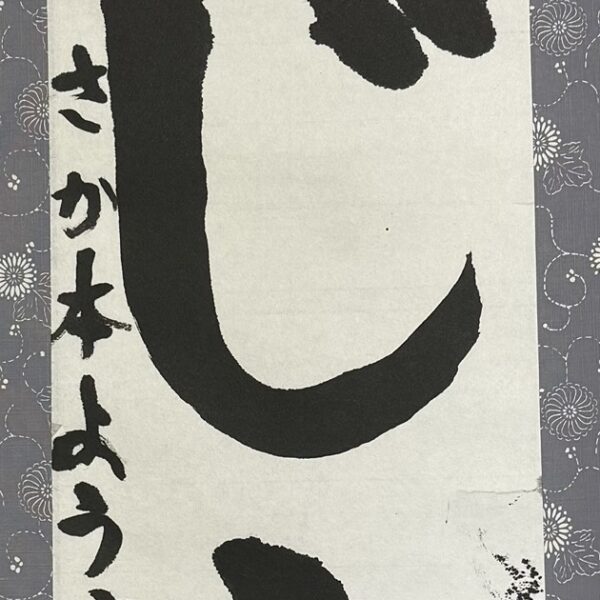 じ
さか本よう